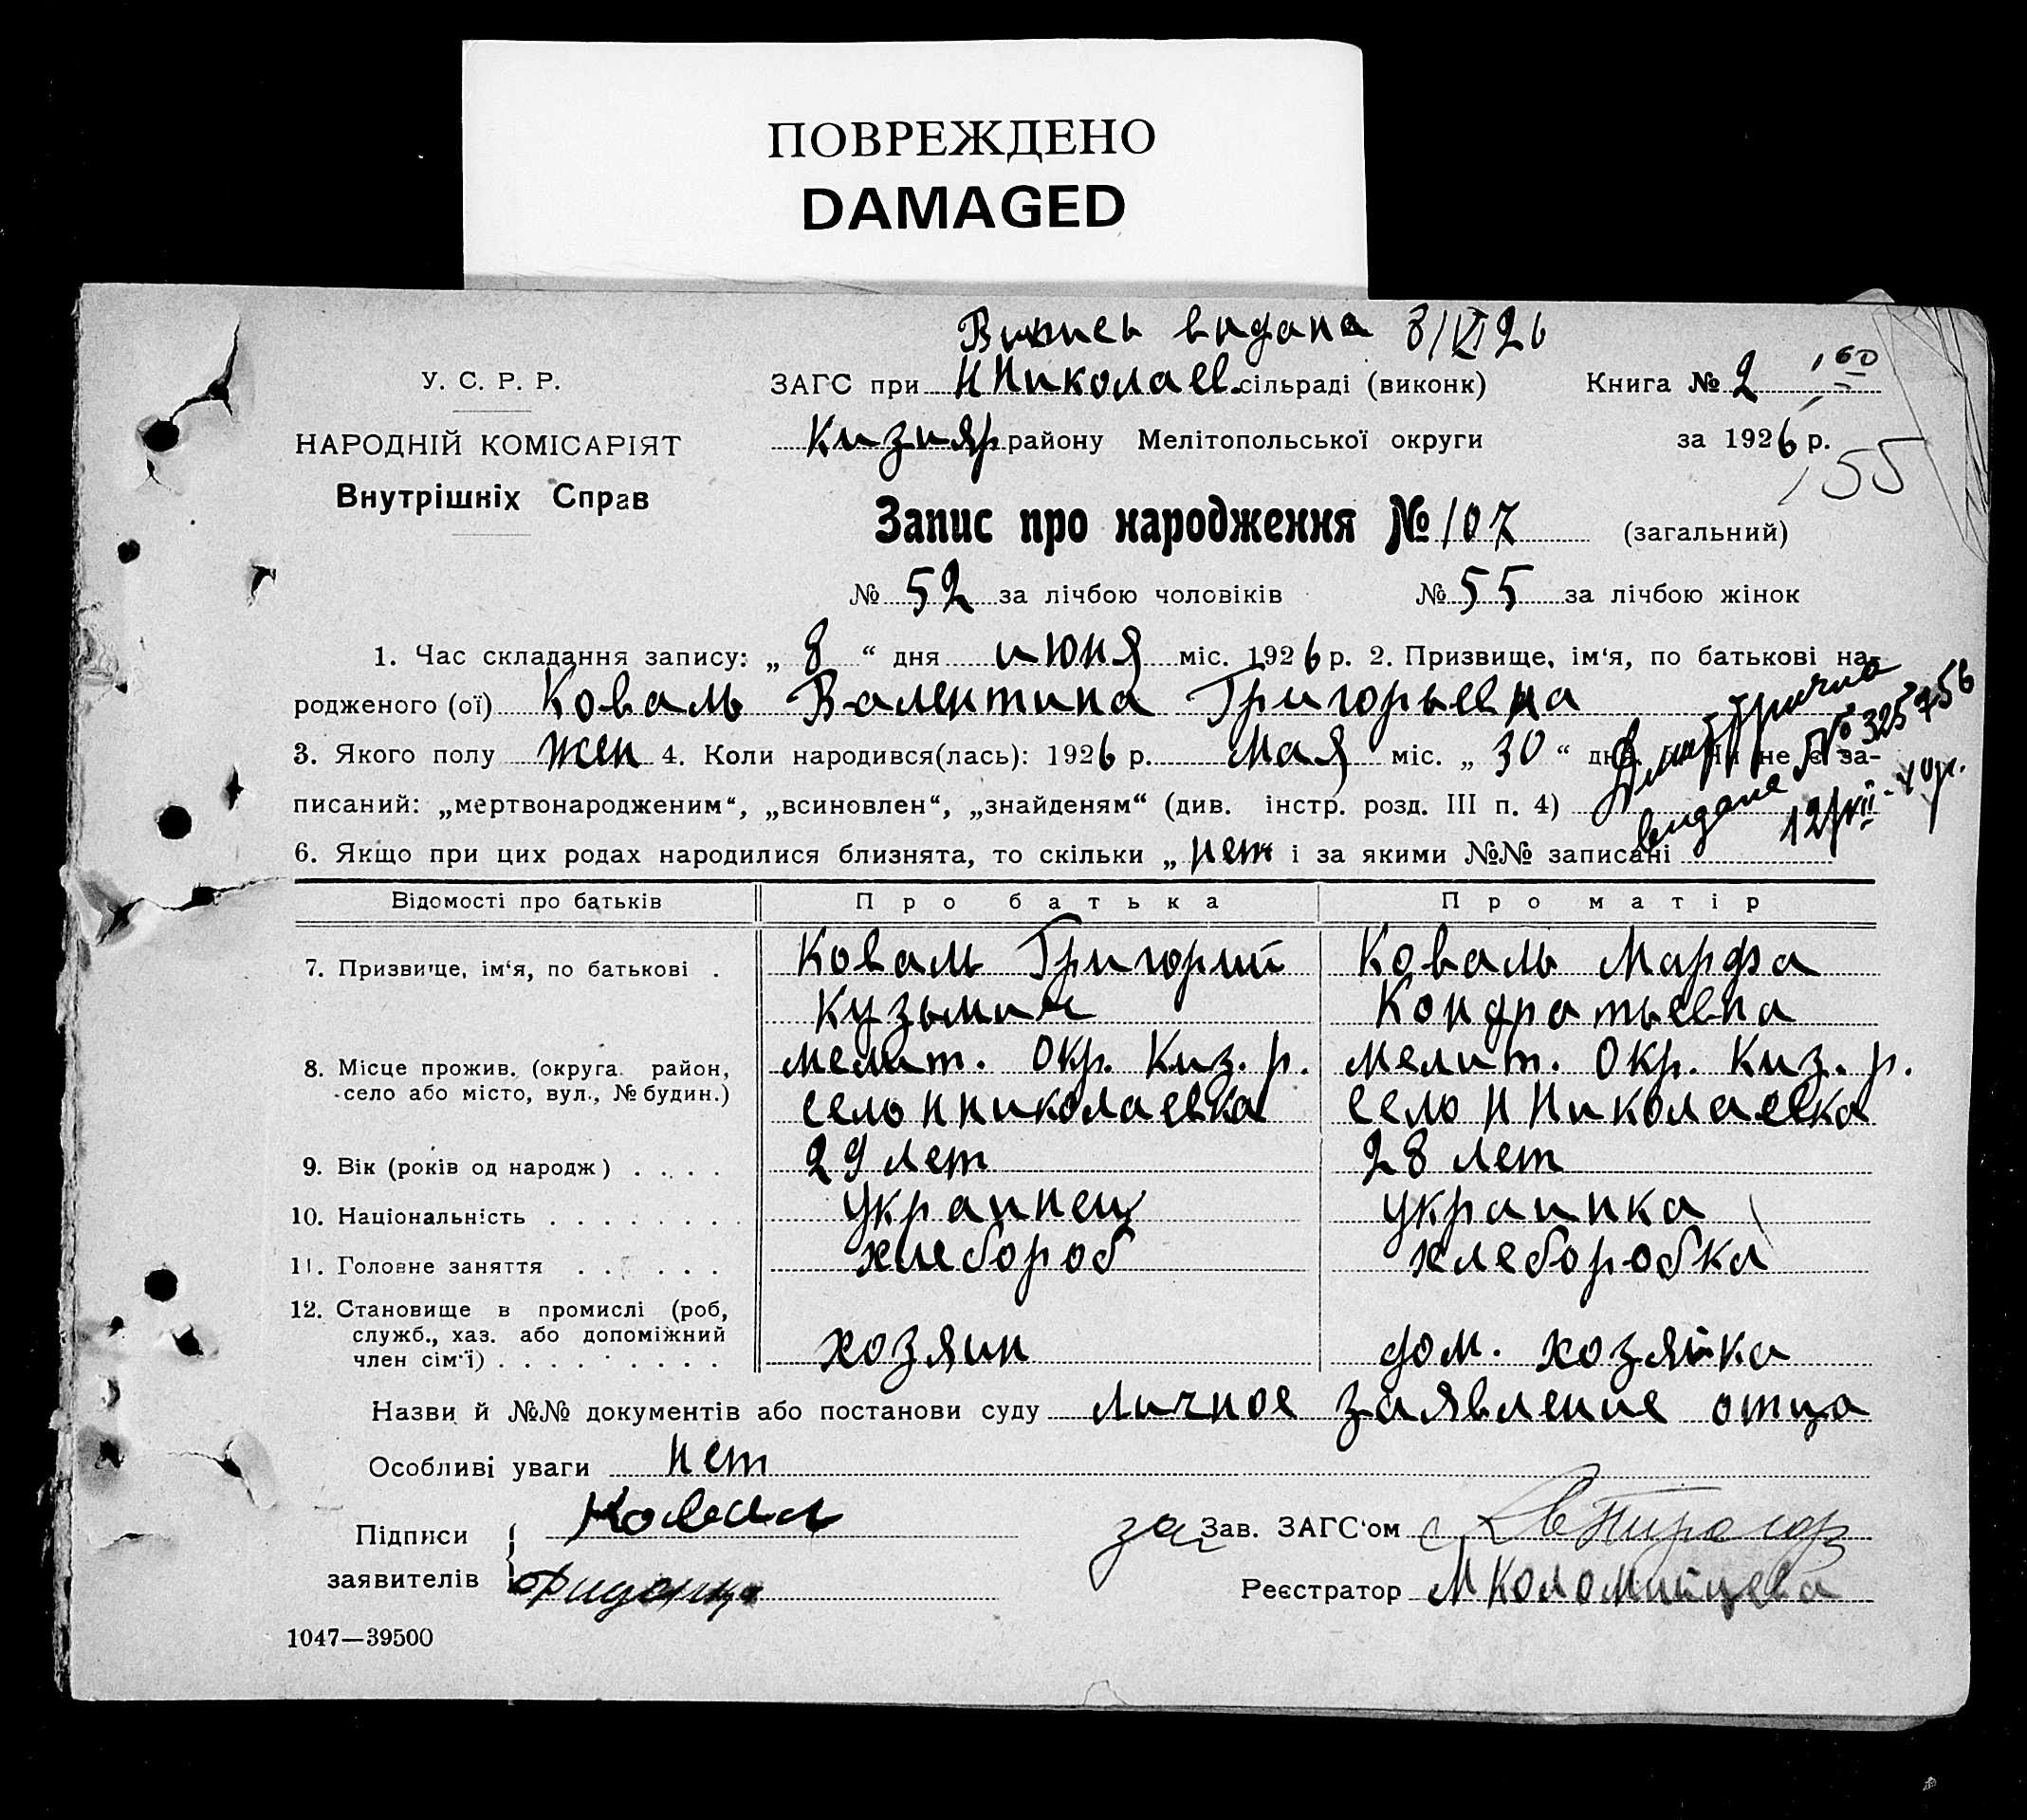 ПОВРЕЖДЕНО
DAMAGED
Випись видана 8/VI 26
У. С. Р. Р.
ЗАГС при Н Николаев. сільраді (виконк)
Книга № 2
160
НАРОДНІЙ КОМІСАРІЯТ
Кизияр району Мелітопольської округи
за 1926 р.
155
Внутрішніх Справ
Запис про народження № 107 (загальний)
№ 52 за лічбою чоловіків № 55 за лічбою жінок
1. Час складання запису: „ 8 “ дня июня міс. 1926 р. 2. Призвище, ім‘я, по батькові на-
родженого (ої) Коваль Валентина Григорьевна
3. Якого полу жен 4. Коли народився(лась): 1926 р. мая міс. „ 30 “ дня 5. Чи не є за-
писаний: „мертвонародженим“, „всиновлен“, „знайденям“ (див. інстр. розд. III п. 4)
видана № 325756
12/XII
6. Якщо при цих родах народилися близнята, то скільки „ нет і за якими №№ записані
Відомості про батьків
Про батька
Про матір
7. Призвище, ім‘я, по батькові .
Коваль Григорий
Кузьмич
Коваль Марфа
Кондратьевна
8. Місце прожив. (округа район,
село або місто, вул., № будин.)
мелит. окр. Киз. р.
село Н Николаевка
мелит. окр. Киз. р.
село Н Николаевка
9. Вік (років од народж) . . . .
29 лет
28 лет
10. Національність . . . . . . . .
украинец
украинка
11. Головне заняття . . . . . .
хлебороб
хлеборобка
12. Становище в промислі (роб,
служб., хаз. або допоміжний
член сім‘ї) . . . . . . . . . .
хозяин
дом. хозяйка
Назви й №№ документів або постанови суду личное заявление отца
Особливі уваги нет
Підписи
заявителів
Коваль
за Зав. ЗАГС‘ом
Реєстратор М Коломийцева
1047—39500